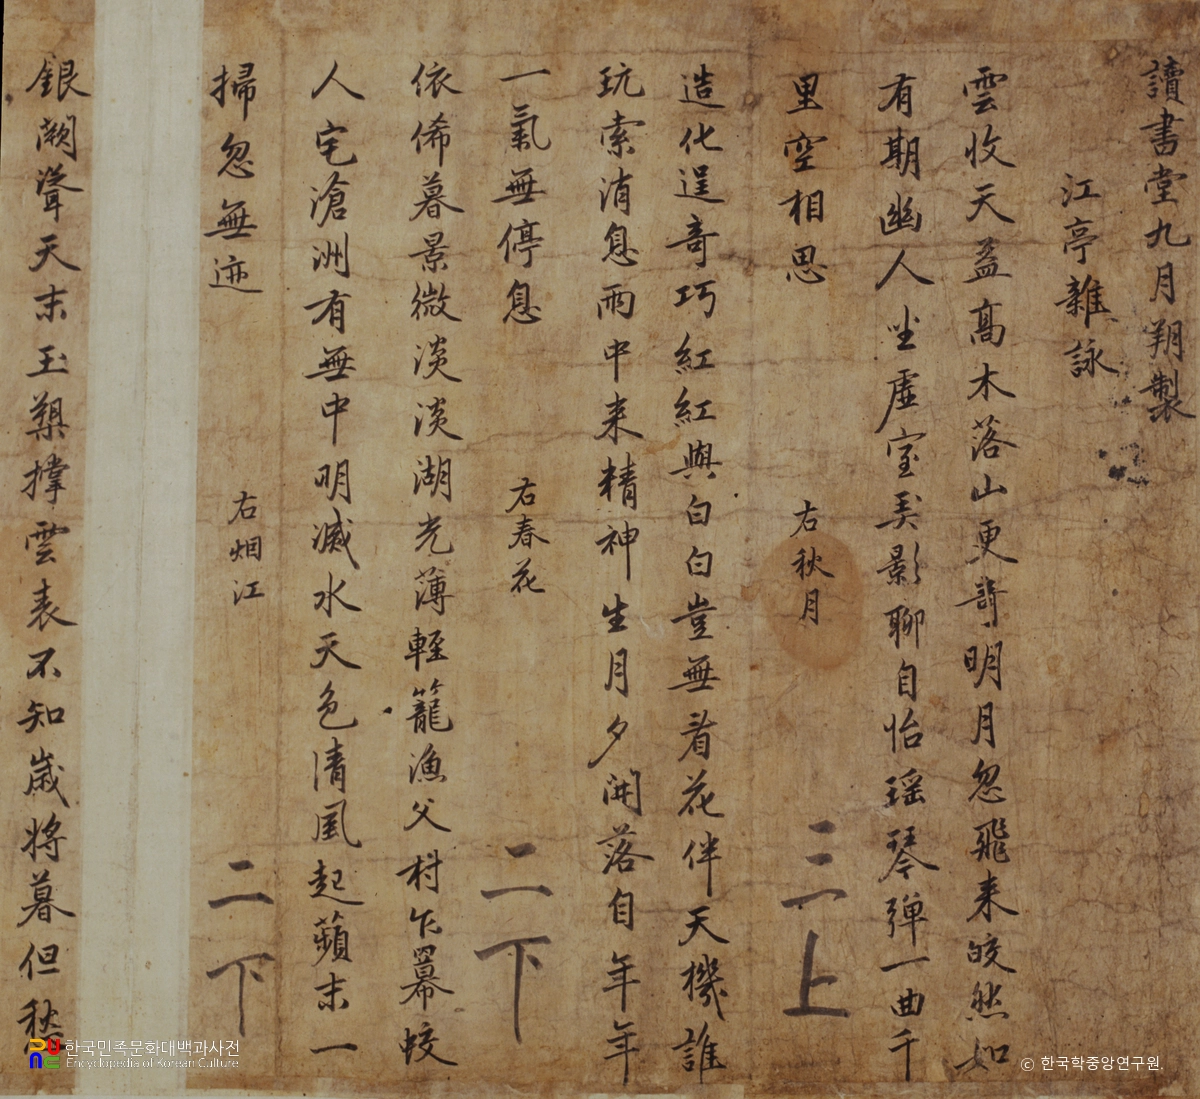 讀書堂九月朔製
江亭雜詠
雲收天益高木落山更奇明月忽飛来皎然如
有期幽人坐虛室弄影聊自怡瑶琴弾一曲千
里空相思
右秋月
三上
造化逞奇巧紅紅與白白豈無看花伴天機誰
玩索消息雨中来精神生月夕開落自年年
一氣無停息
右春花
二下
依俙暮景微淡淡湖光薄輕籠漁父村乍羃蛟
人宅滄洲有無中明滅水天色清風起蘋末一
掃忽無迹
右烟江
二下
銀闕聳天末玉槊撑雲表不知歲将暮但愁
한국민족문화대백과사전
Encyclopedia of Korean Culture
© 한국학중앙연구원.